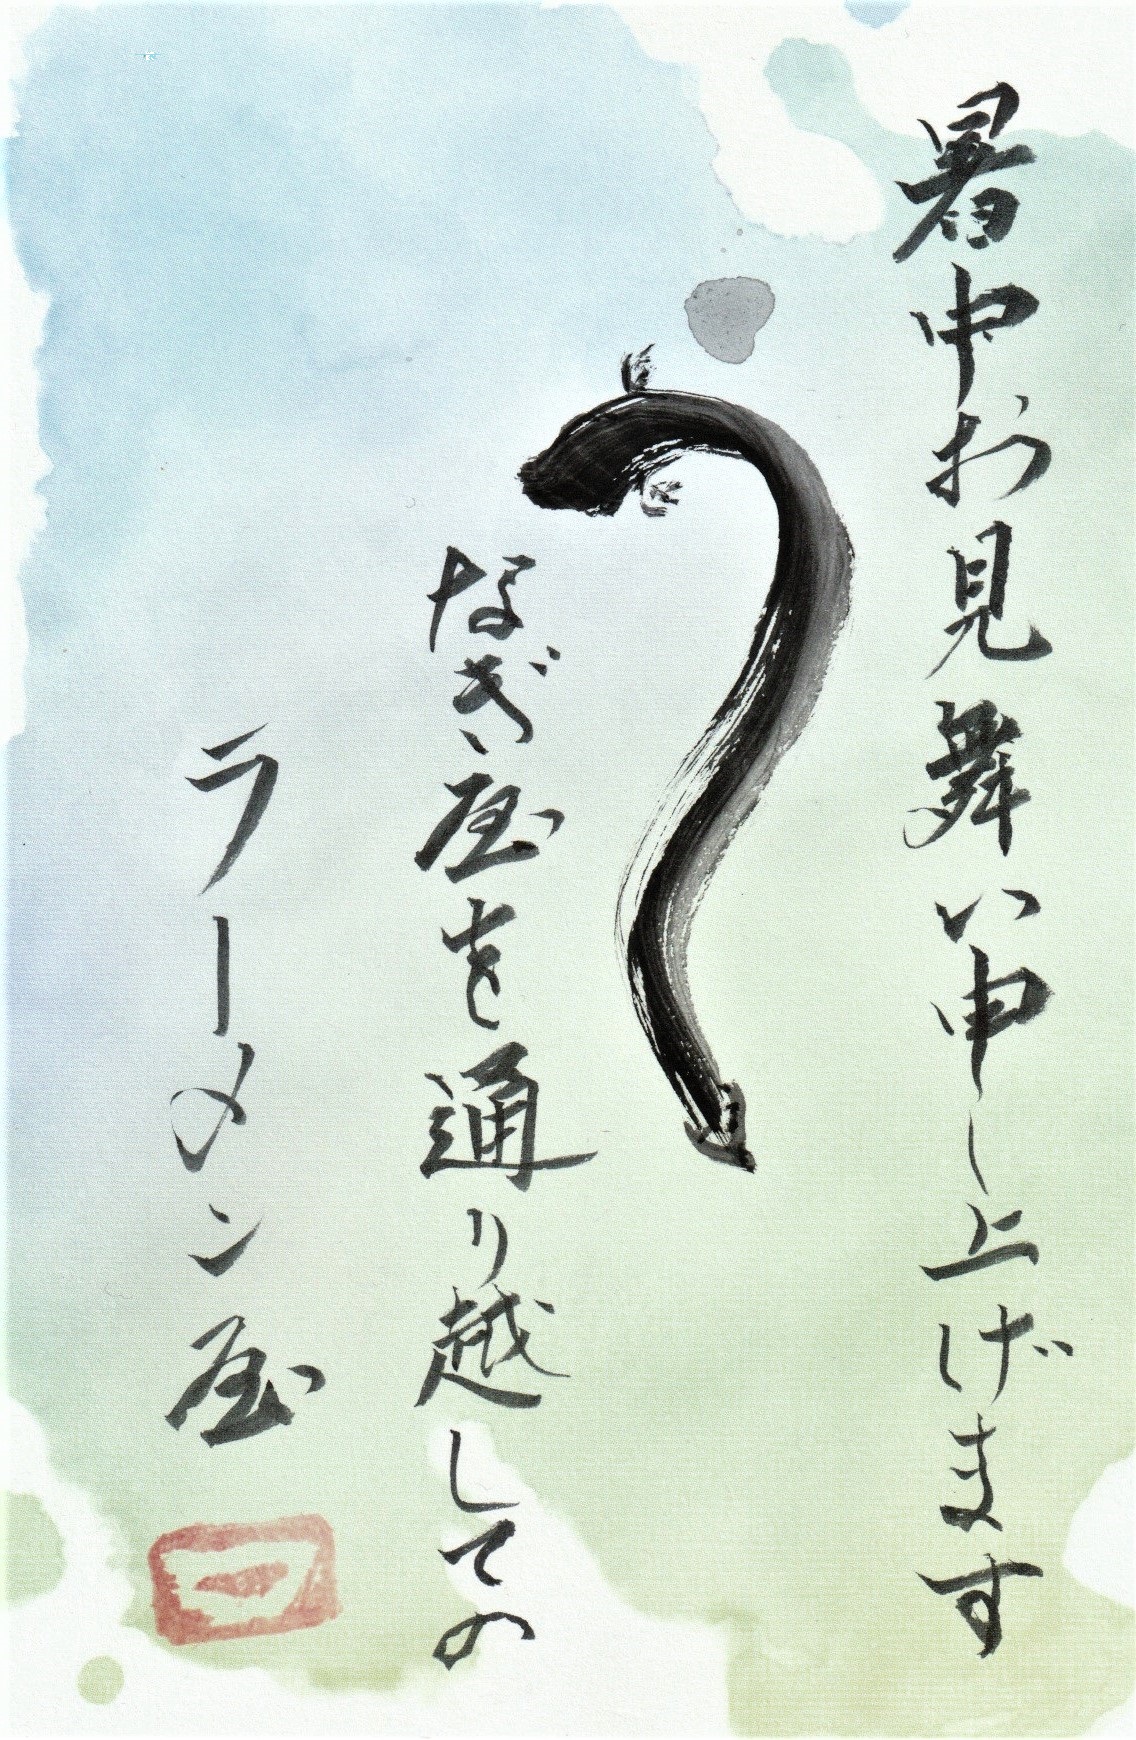 暑中お見舞い申し上げます
なぎ屋を通り越しての
ラーメン屋